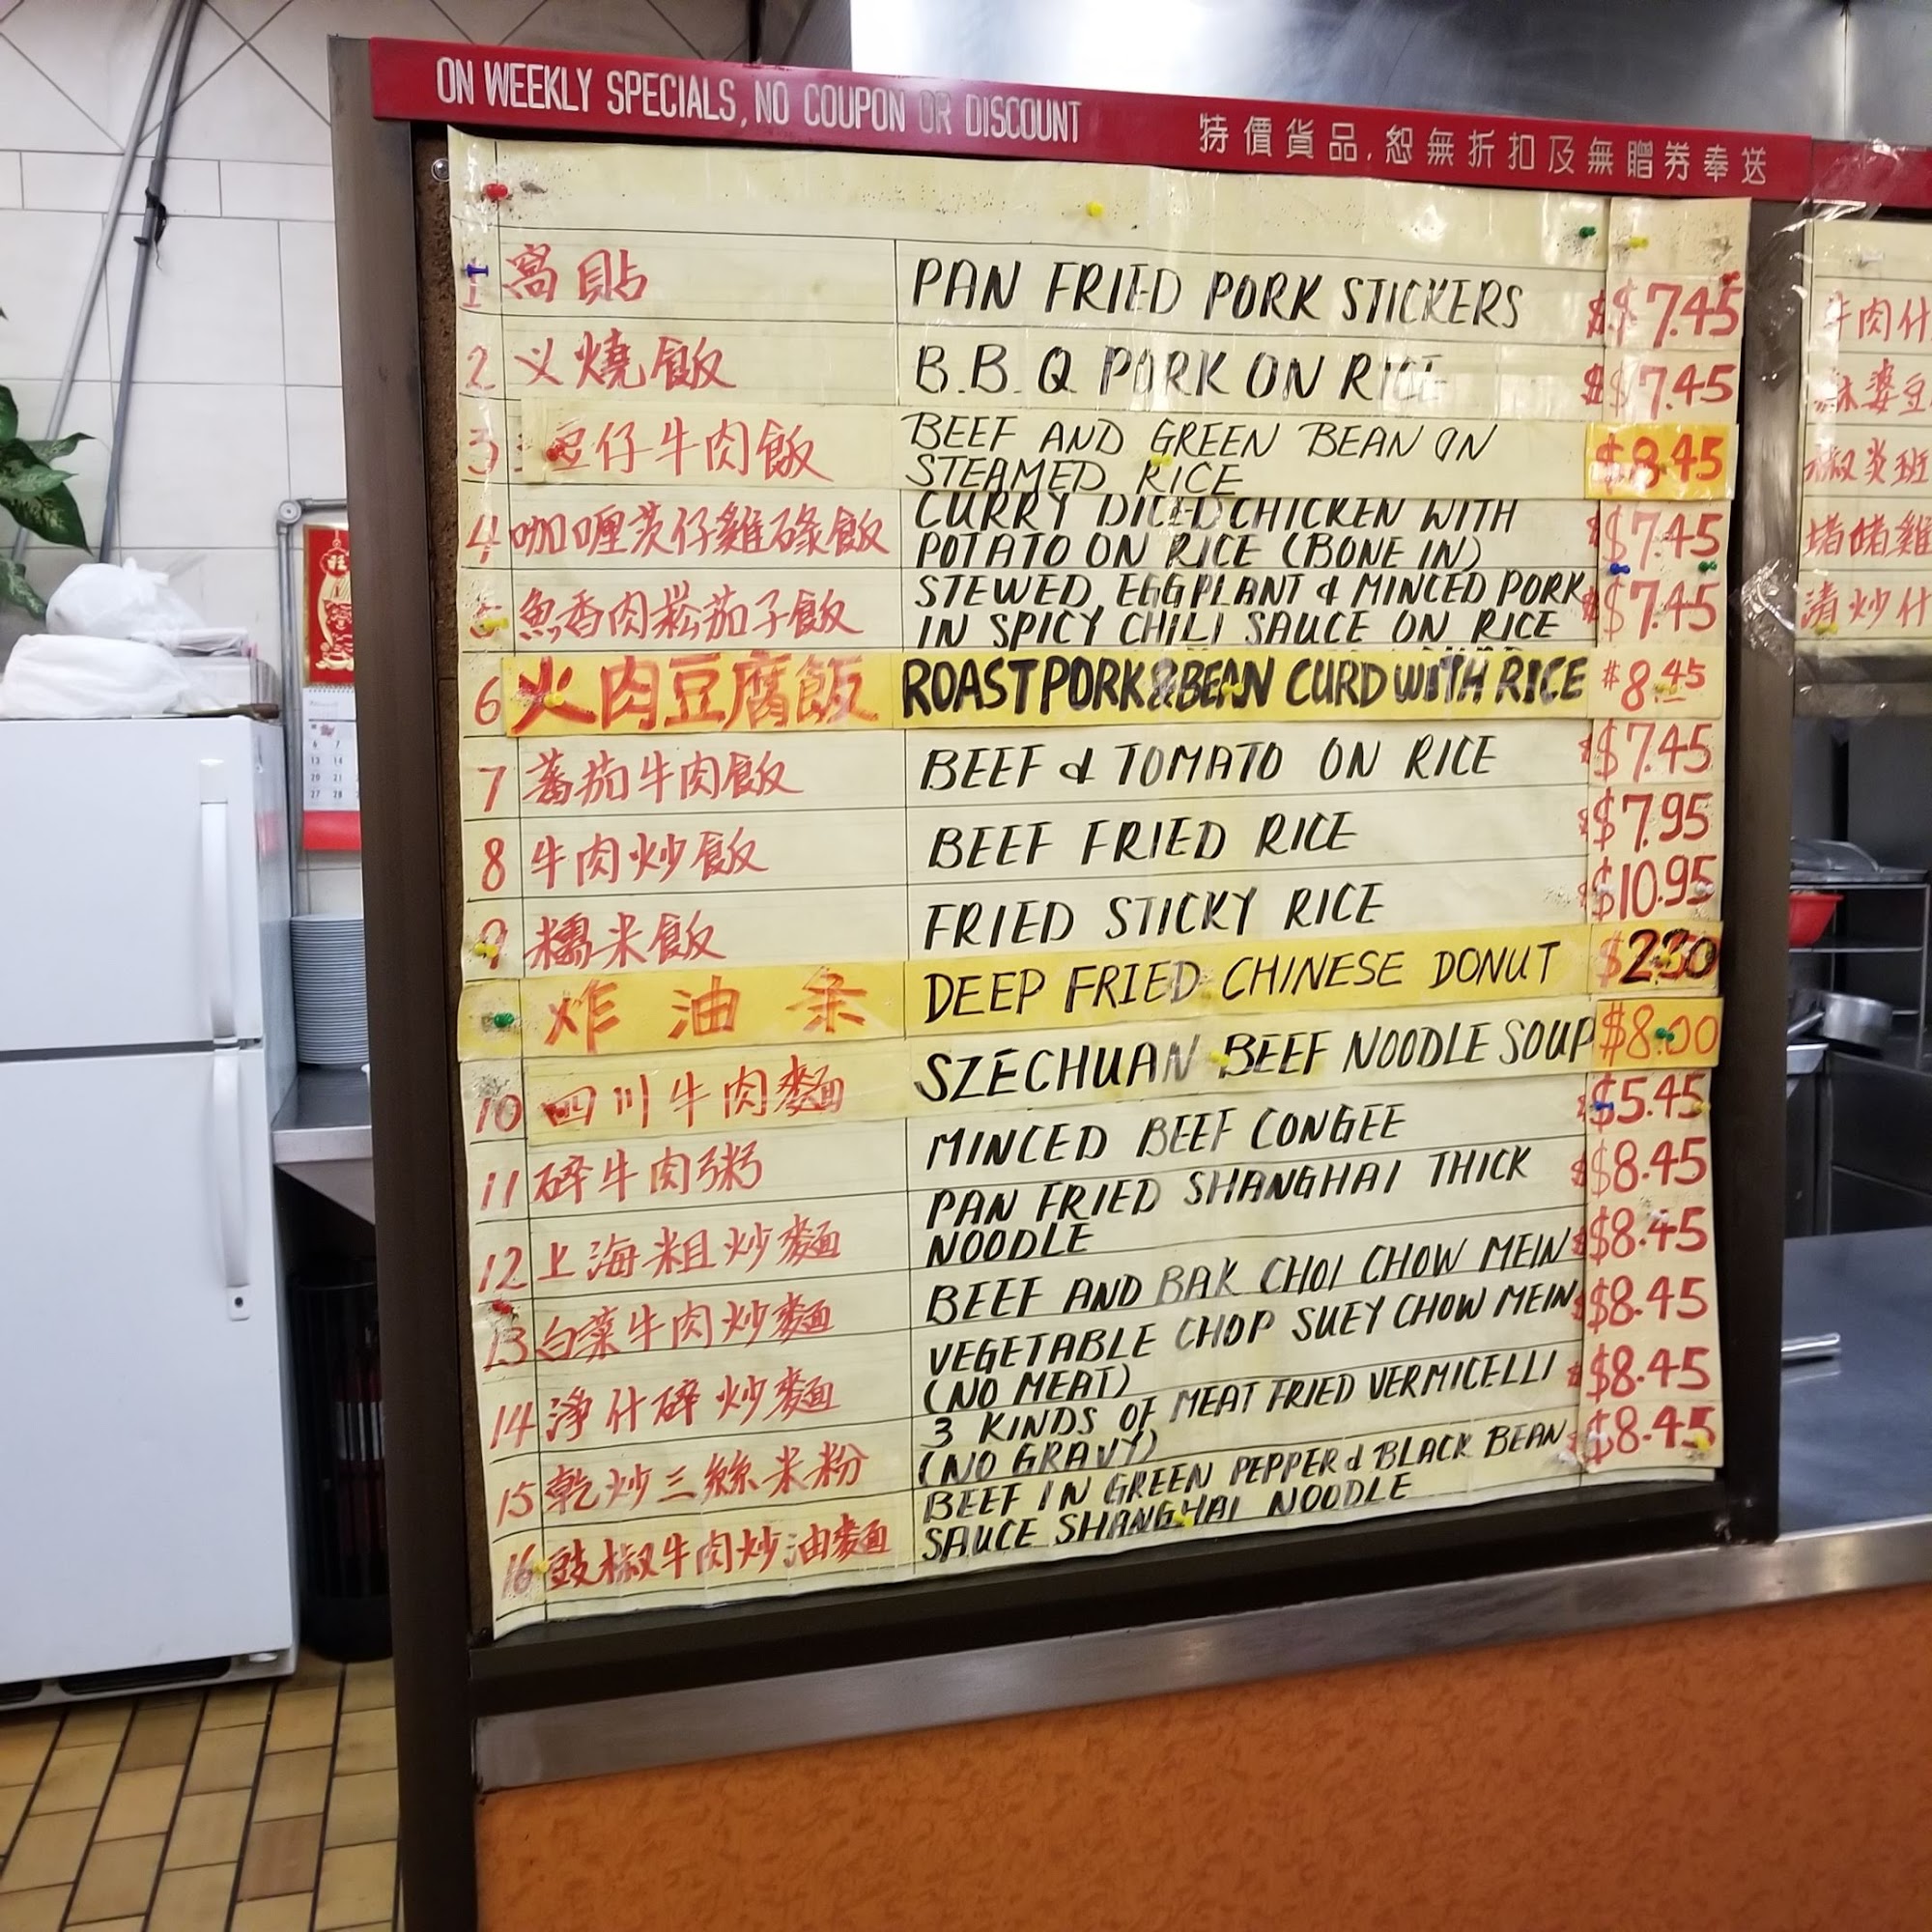 ON WEEKLY SPECIALS, NO COUPON OR DISCOUNT 特價貨品,恕無折扣及無贈券奉送
1 窩貼 PAN FRIED PORK STICKERS $7.45
2 义燒飯 B.B.Q PORK ON RICE $7.45
3 豆仔牛肉飯 BEEF AND GREEN BEAN ON
STEAMED RICE $8.45
4 咖喱茨仔雞碌飯 CURRY DICED CHICKEN WITH
POTATO ON RICE (BONE IN) $7.45
5 魚香肉崧茄子飯 STEWED EGGPLANT & MINCED PORK
IN SPICY CHILI SAUCE ON RICE $7.45
6 火肉豆腐飯 ROAST PORK & BEAN CURD WITH RICE $8.45
7 蕃茄牛肉飯 BEEF & TOMATO ON RICE $7.45
8 牛肉炒飯 BEEF FRIED RICE $7.95
9 糯米飯 FRIED STICKY RICE $10.95
炸油条 DEEP FRIED CHINESE DONUT $2.30
10 四川牛肉麵 SZECHUAN BEEF NOODLE SOUP $8.00
11 碎牛肉粥 MINCED BEEF CONGEE $5.45
12 上海粗炒麵 PAN FRIED SHANGHAI THICK
NOODLE $8.45
13 白菜牛肉炒麵 BEEF AND BAK CHOI CHOW MEIN $8.45
14 淨什碎炒麵 VEGETABLE CHOP SUEY CHOW MEIN
(NO MEAT) $8.45
15 乾炒三絲米粉 3 KINDS OF MEAT FRIED VERMICELLI
(NO GRAVY) $8.45
16 豉椒牛肉炒油麵 BEEF IN GREEN PEPPER & BLACK BEAN
SAUCE SHANGHAI NOODLE $8.45
牛肉什
婆豆
椒炎班
啫啫雞
清炒什